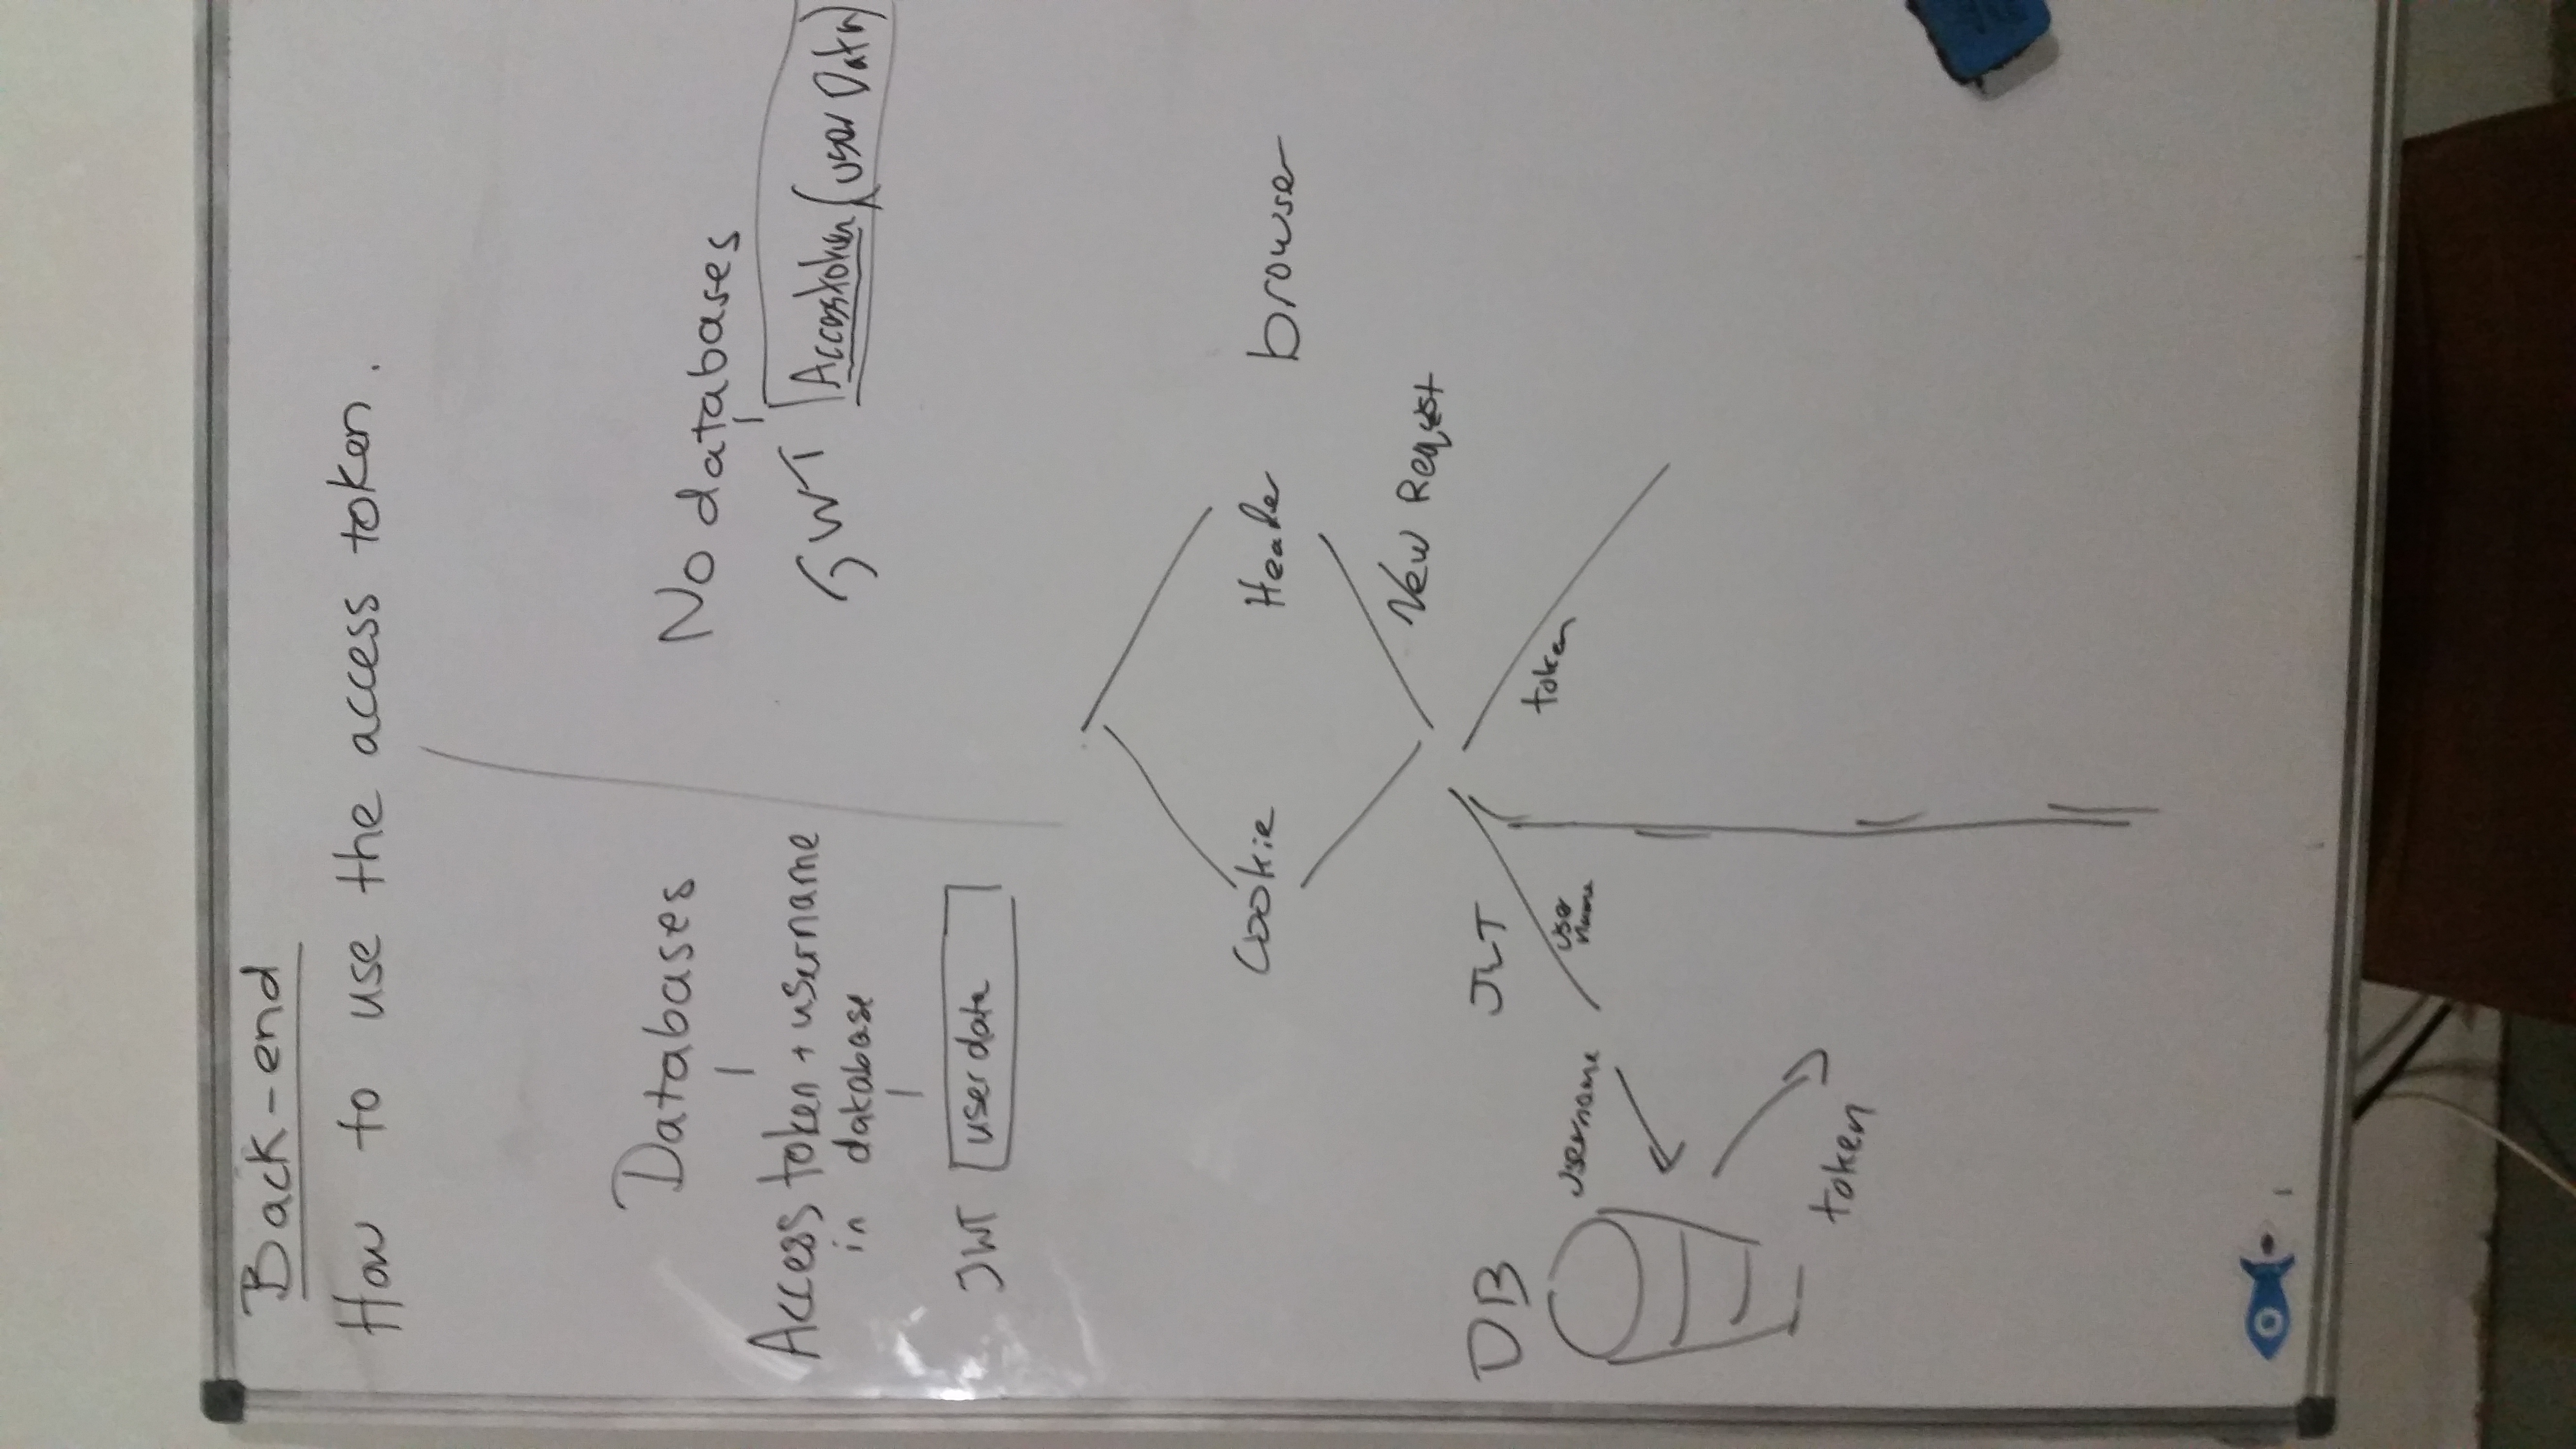 Back-end
How to use the access token.
Databases
Access token + username
in database
JWT user data
No databases
JWT Accesstoken (user Data)
Cookie
Header
browser
New Request
DB
JWT
username
user
name
token
token